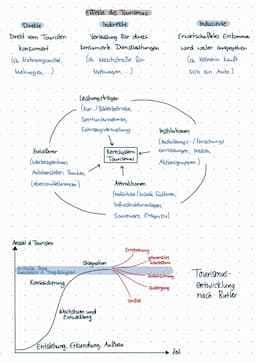 Effekte des Tourismus
Direkte
Indirekte
Induzierte
Direkt vom Touristen
konsumiert
(z.B. Nahrungsmittel,
Wohnungen ...)
Vorleistung für direkt
konsumierte Dienstleistungen
(z.B. Waschstraße für
Wohnungen ...)
Erwirtschaftetes Einkommen
wird weiter ausgegeben
(z.B. Kellnerin kauft
sich ein Auto)
Leistungsträger
(Kur-/Bäderbetriebe,
Sportunternehmen,
Fahrzeugvermietung
Institutionen
(Ausbildungs-/Forschungs-
einrichtungen, Medien,
Aktionsgruppen)
Kernsystem
Tourismus
Zulieferer
(Werbeagenturen,
Autohersteller, Banken,
Lebensmittelbranche)
Attraktionen
(natürliche/soziale Faktoren,
Infrastrukturanlagen,
Souvenirs, Ereignisse)
Anzahl d. Touristen
Stagnation
Erneuerung
Konsolidierung
Stabilisierung
Niedergang
Verfall
Wachstum und
Entwicklung
Entstehung, Erkundung, Aufbau
Zeit
Tourismus-
entwicklung
nach Butler